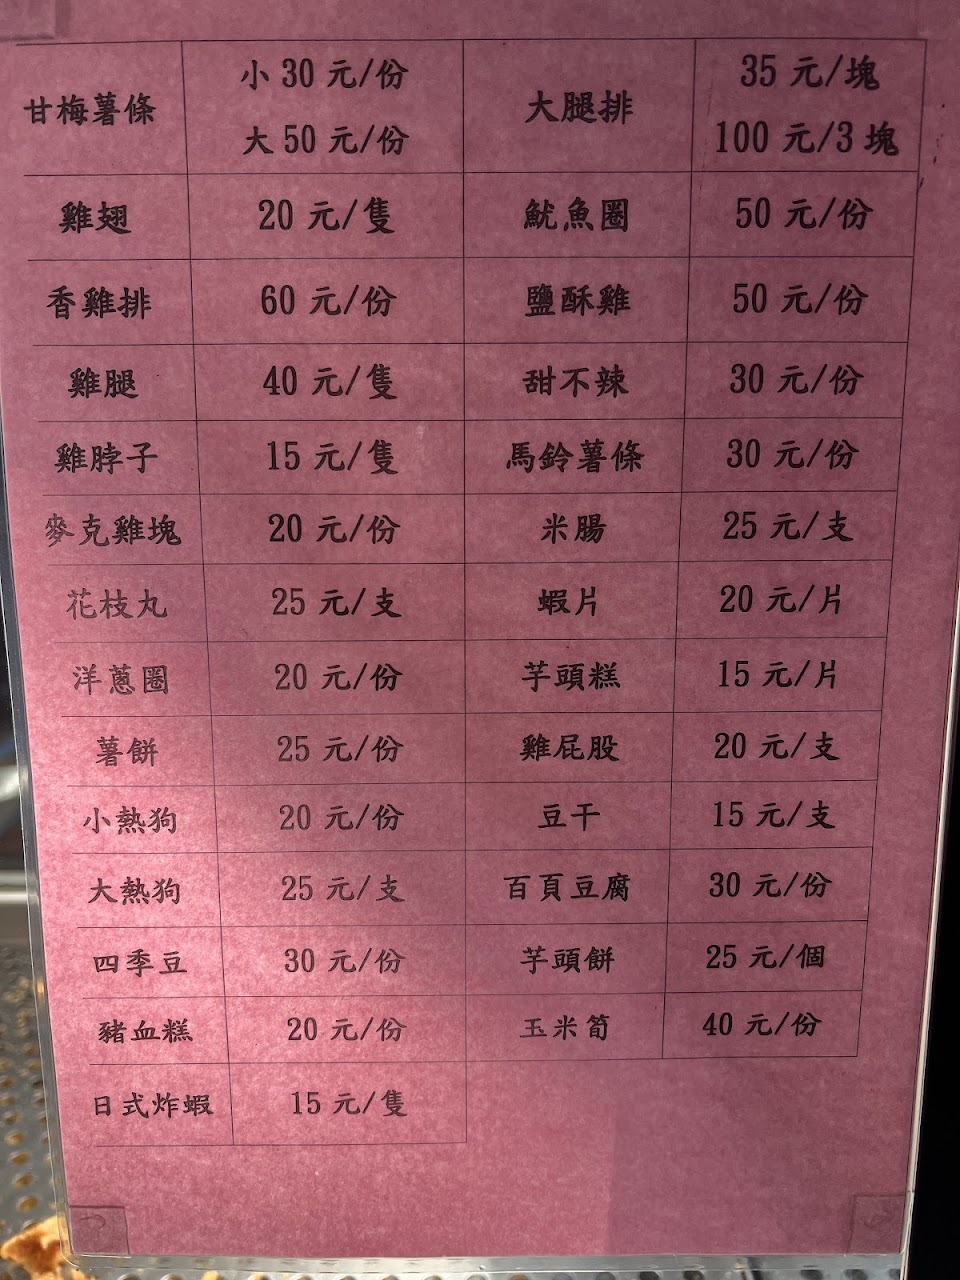 甘梅薯條 小 30 元/份 大腿排 35 元/塊
大 50 元/份 100 元/3 塊
雞翅 20 元/隻 魷魚圈 50 元/份
香雞排 60 元/份 鹽酥雞 50 元/份
雞腿 40 元/隻 甜不辣 30 元/份
雞脖子 15 元/隻 馬鈴薯條 30 元/份
麥克雞塊 20 元/份 米腸 25 元/支
花枝丸 25 元/支 蝦片 20 元/片
洋蔥圈 20 元/份 芋頭糕 15 元/片
薯餅 25 元/份 雞屁股 20 元/支
小熱狗 20 元/份 豆干 15 元/支
大熱狗 25 元/支 百頁豆腐 30 元/份
四季豆 30 元/份 芋頭餅 25 元/個
豬血糕 20 元/份 玉米筍 40 元/份
日式炸蝦 15 元/隻